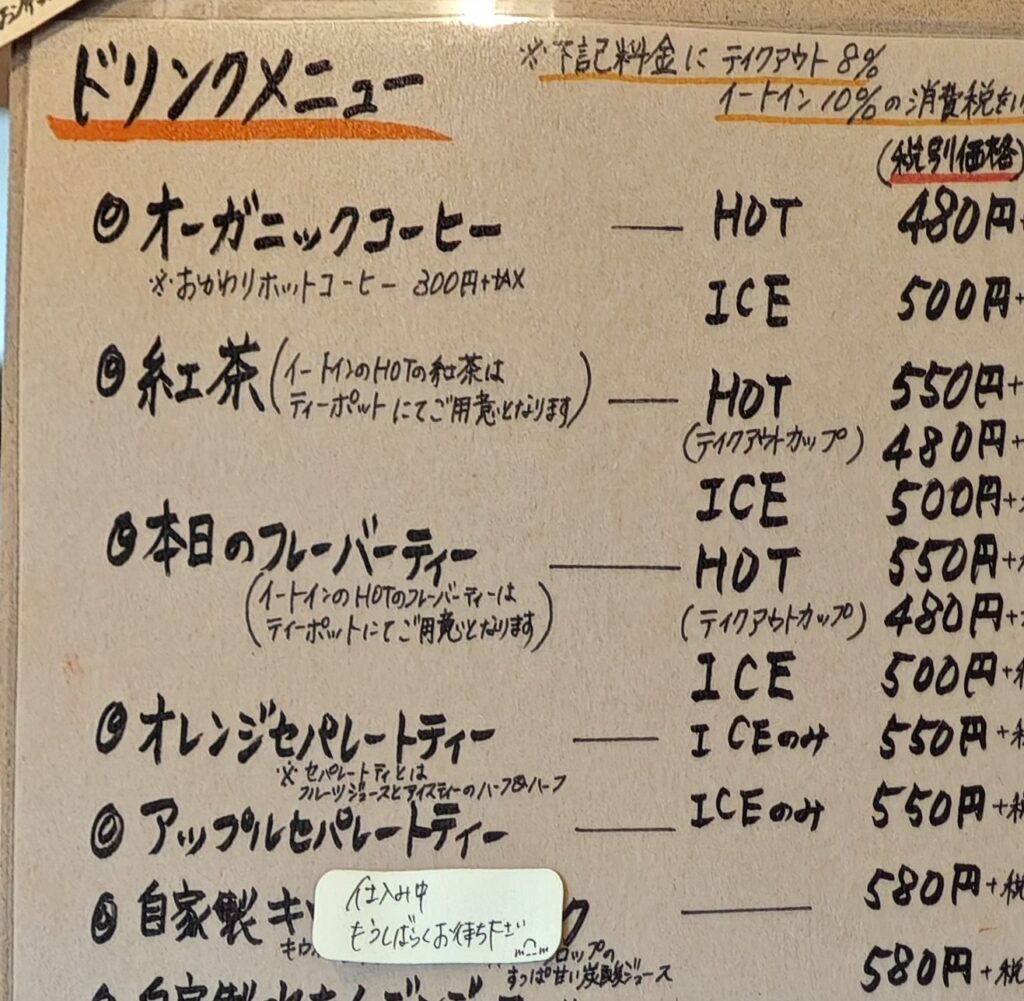 ドリンクメニュー
※下記料金に テイクアウト 8%
イートイン 10%の消費税を
(税別価格)
オーガニックコーヒー ― HOT 480円
※おかわりホットコーヒー 300円+tax
ICE 500円+
紅茶 (イートインのHOTの紅茶は
ティーポットにてご用意となります) ― HOT 550円+
(テイクアウトカップ) 480円+
ICE 500円+
本日のフレーバーティー ― HOT 550円+
(イートインのHOTのフレーバーティーは
ティーポットにてご用意となります) (テイクアウトカップ) 480円+
ICE 500円+税
オレンジセパレートティー ― ICEのみ 550円+税
※セパレートティとは
フルーツジュースとアイスティーのハーフ&ハーフ
アップルセパレートティー ― ICEのみ 550円+税
自家製キ ク ― 580円+税
仕込み中
もうしばらくお待ち下さい m_m
キウ ロップの
すっぱ甘い炭酸ジュース
自家製 580円+税